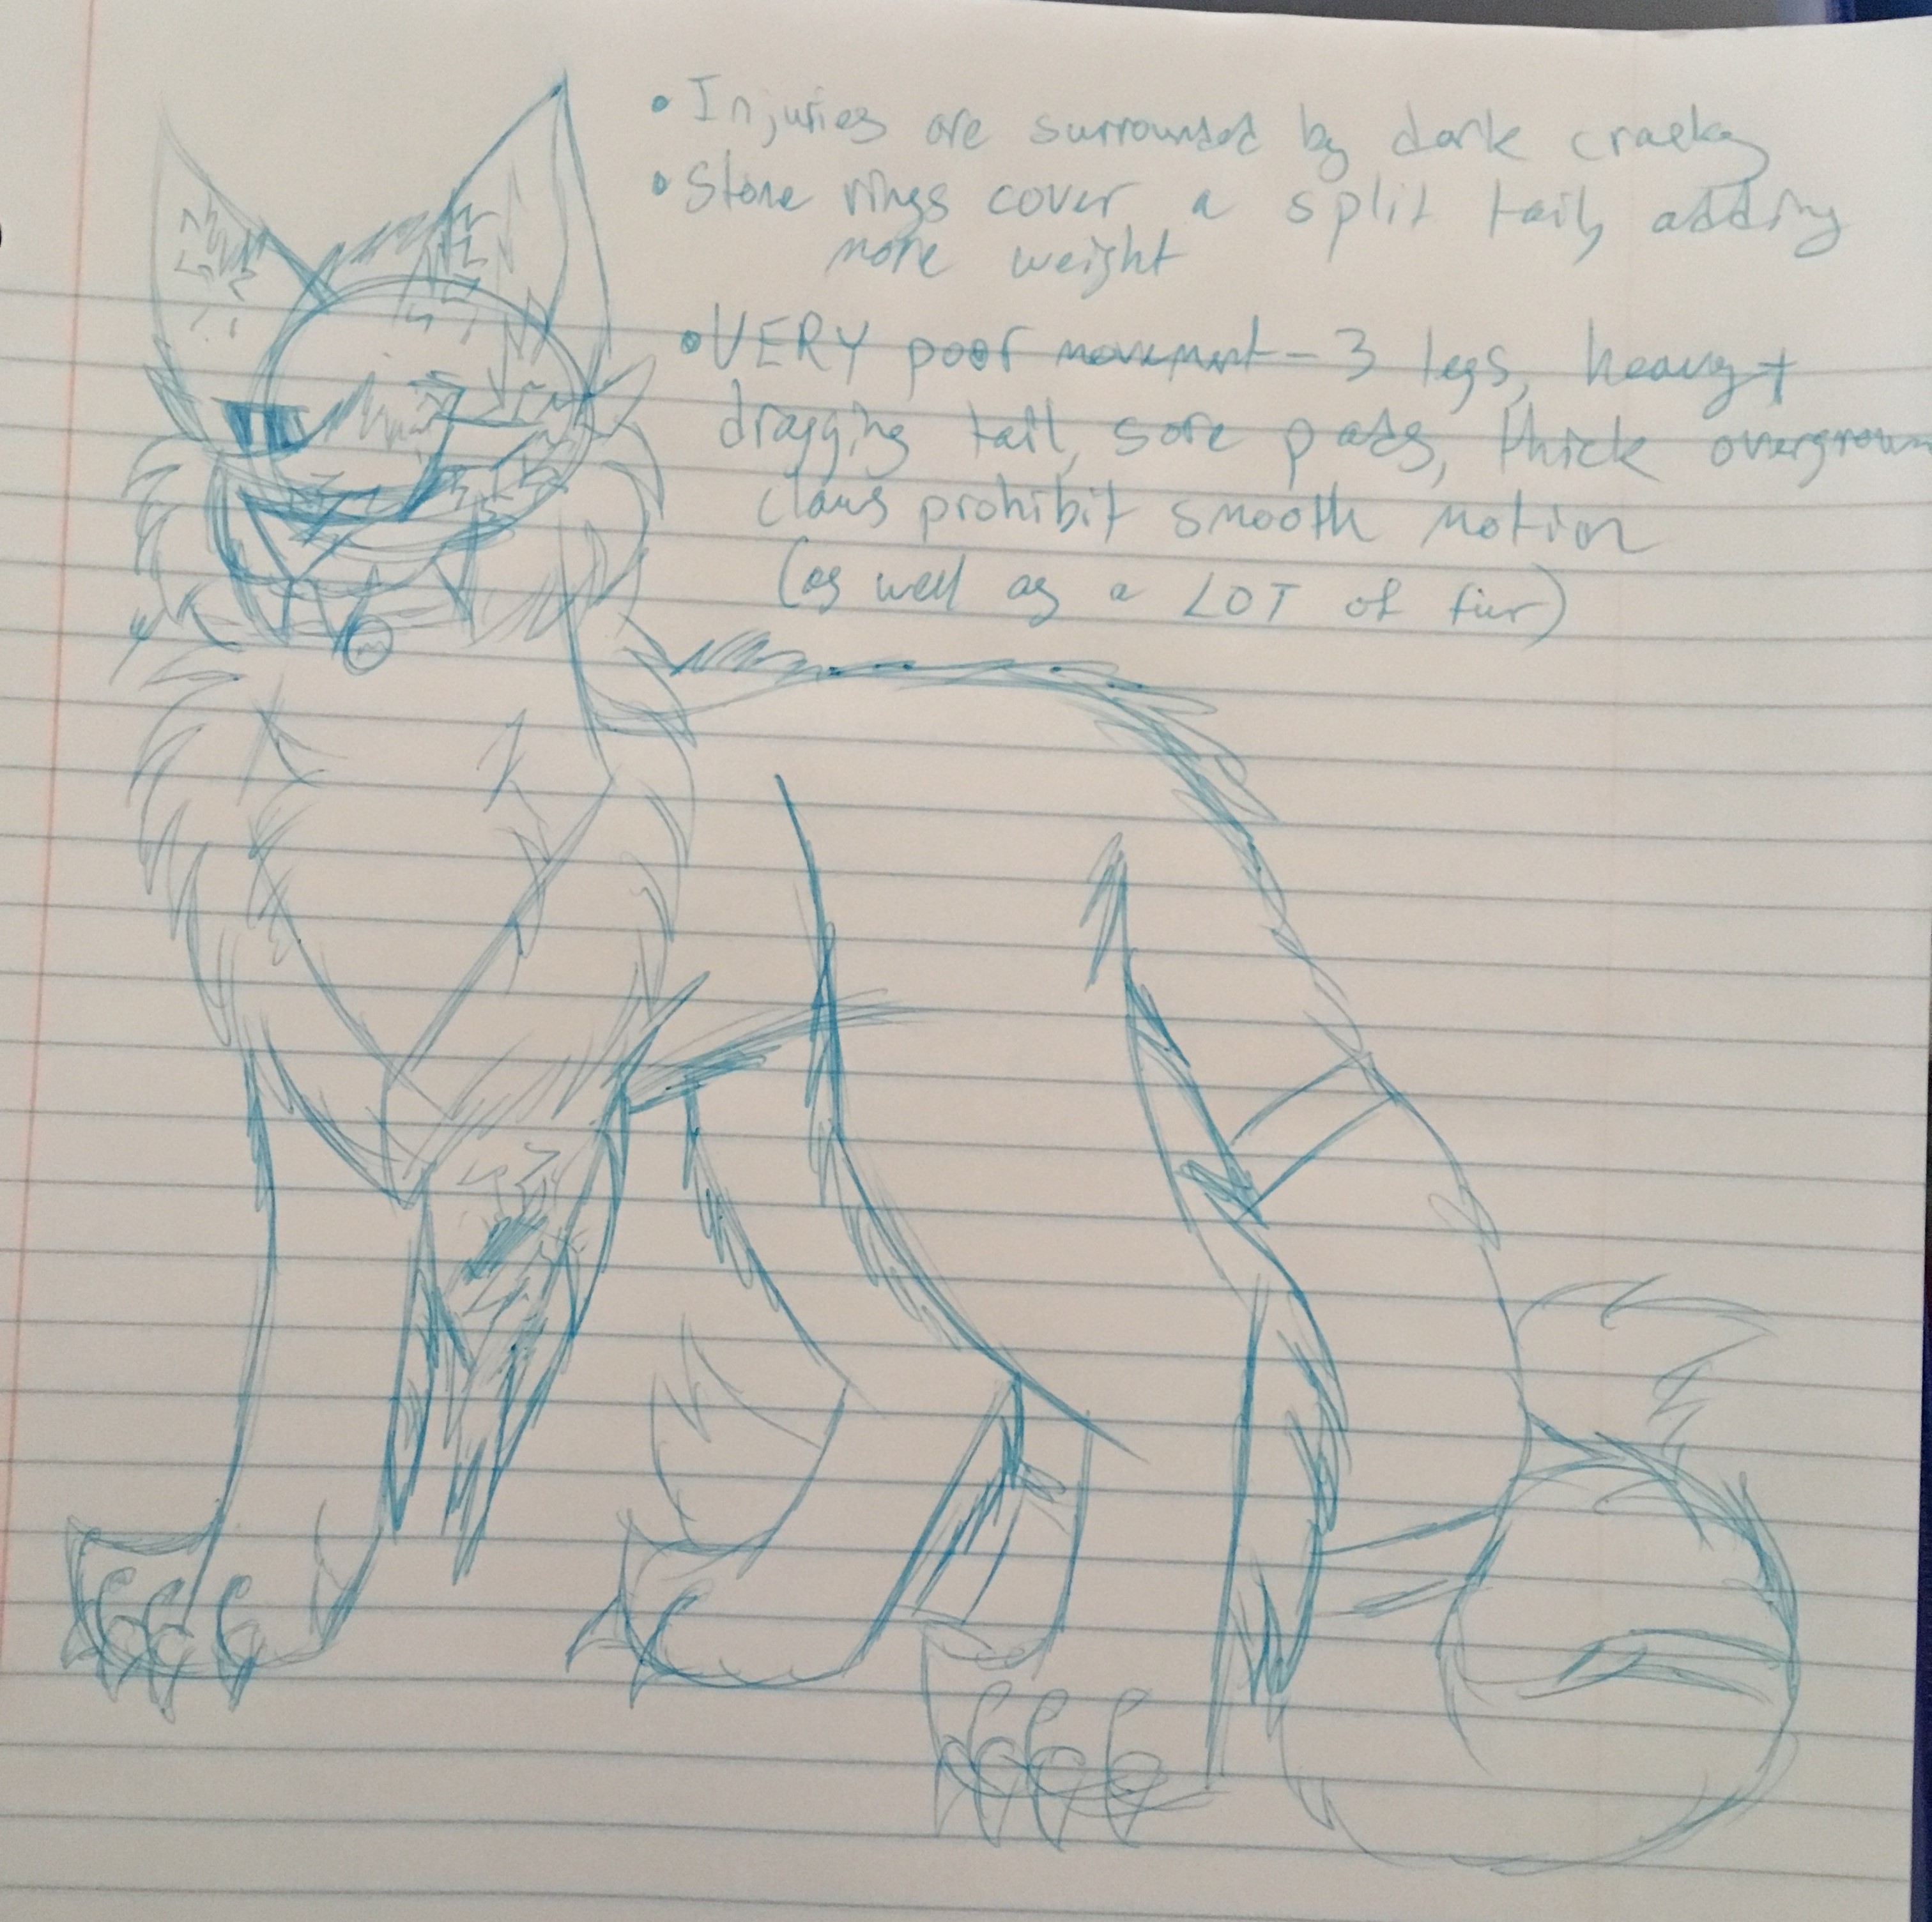 • Injuries are surrounded by dark cracks
• Stone rings cover a split tail, adding
more weight
• VERY poor movement - 3 legs, heavy +
dragging tail, sore pads, thick overgrown
claws prohibit smooth motion
(as well as a LOT of fur)